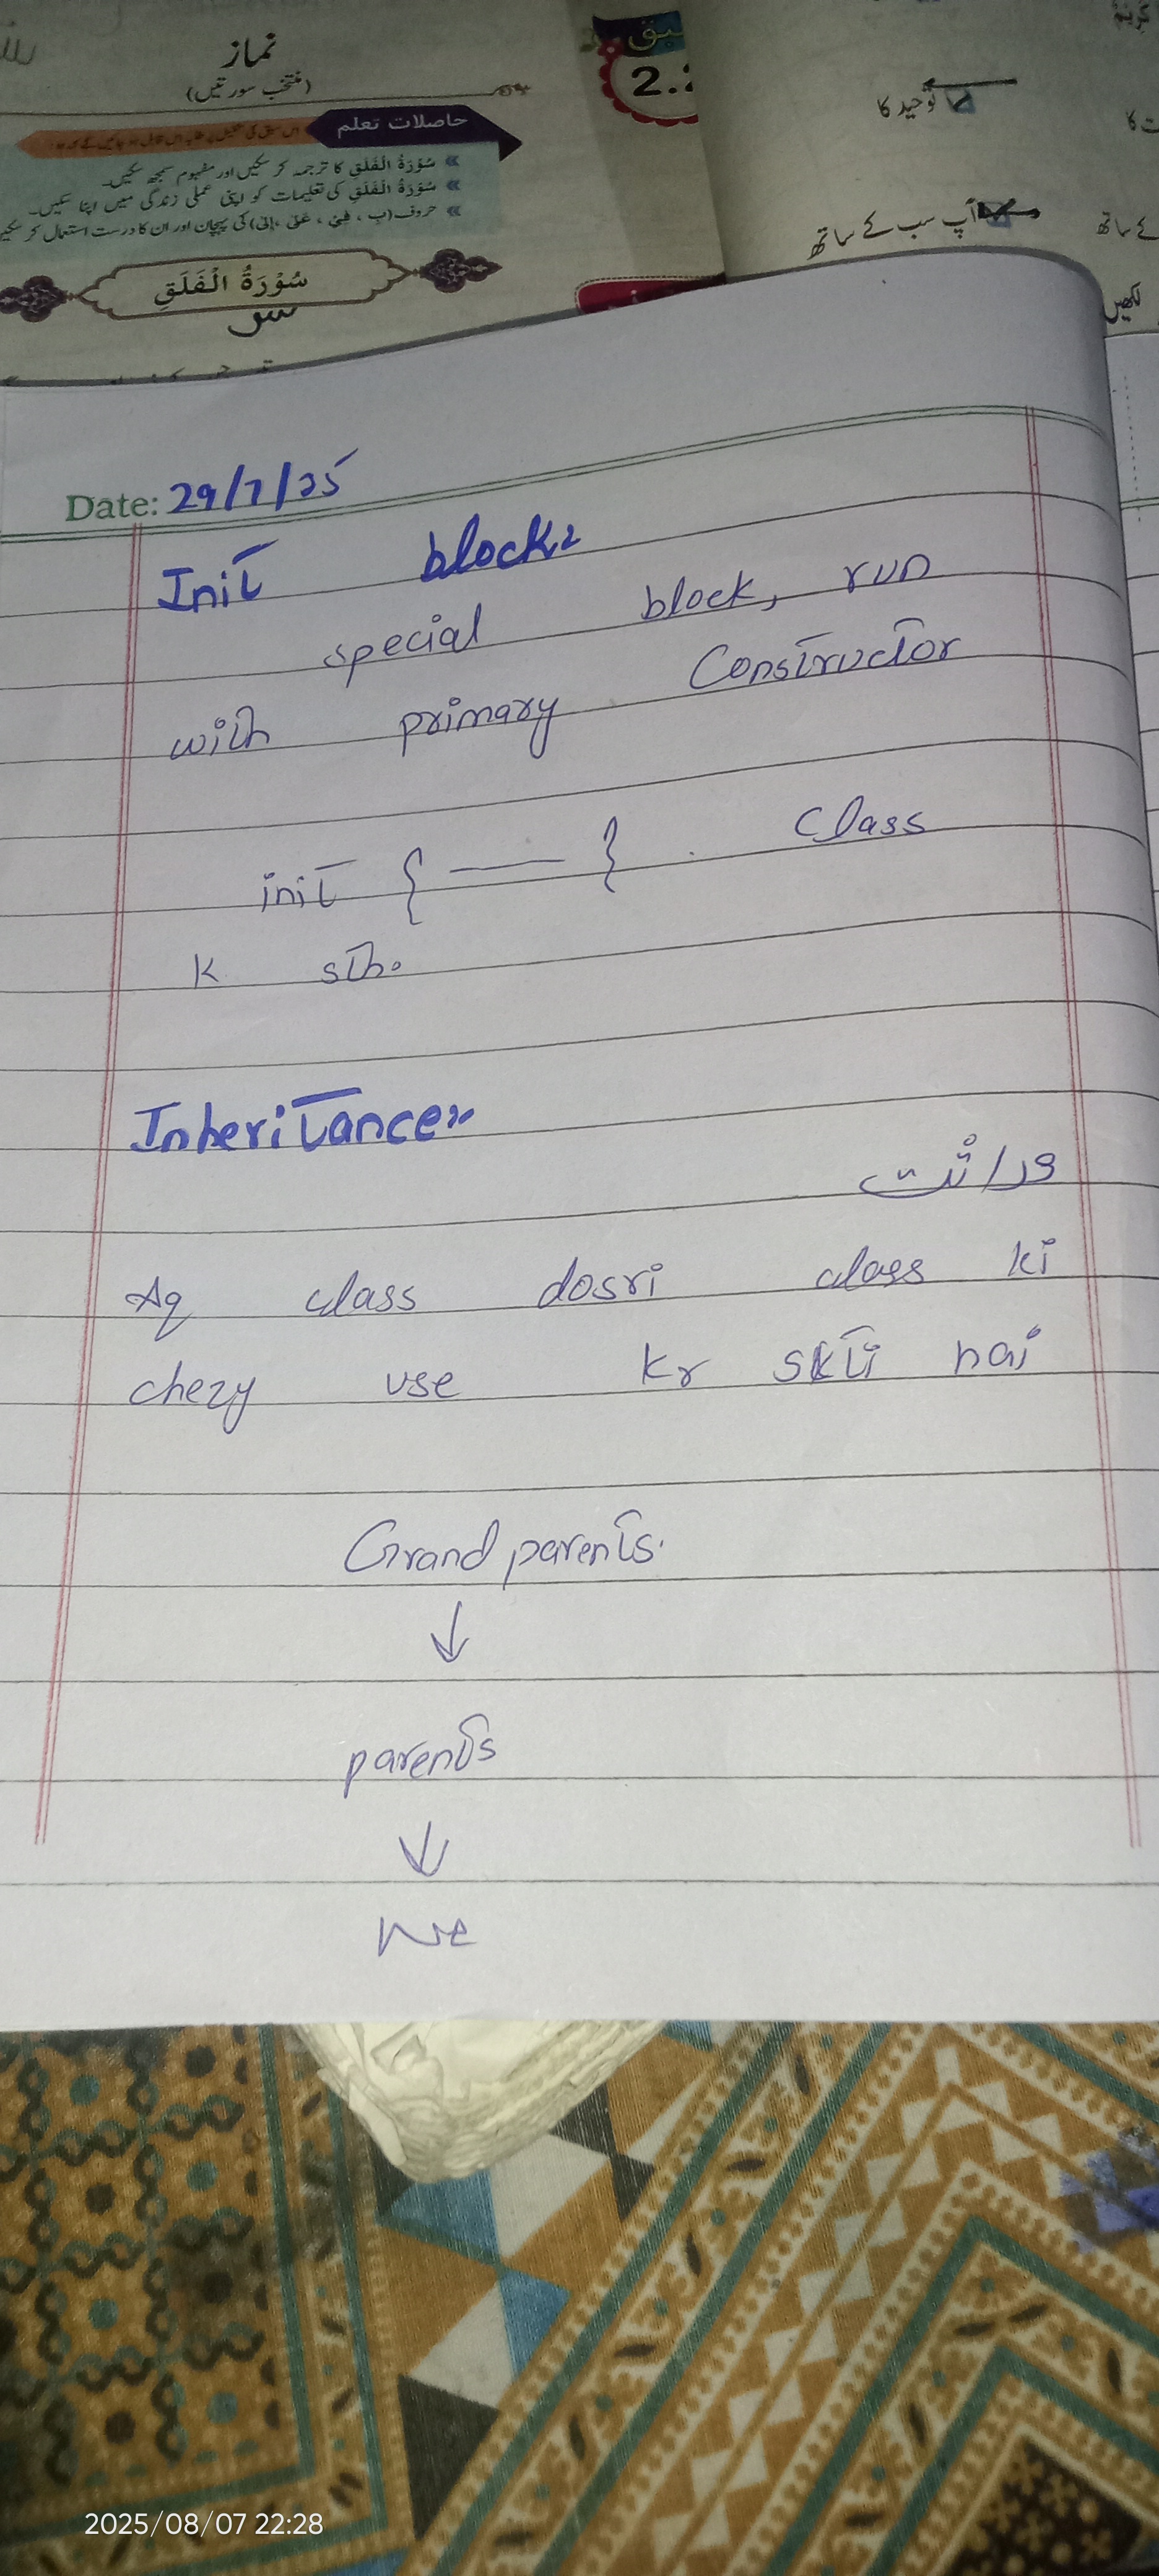 نماز
(منتخب سورتیں)
سبق
2.
حاصلات تعلم
سُوْرَةُ الْفَلَقِ کا ترجمہ کر سکیں اور مفہوم سمجھ سکیں۔
سُوْرَةُ الْفَلَقِ کی تعلیمات کو اپنی عملی زندگی میں اپنا سکیں۔
حروف (بِ ، فِیْ ، عَلٰی ، اِلٰی) کی پہچان اور ان کا درست استعمال کر سکیں
سُوْرَةُ الْفَلَقِ
توحید کا
آپ سب کے ساتھ
کے ساتھ
لکھیں
Date: 29/7/25
Init block:
special block, run
with primary Constructor
init { — } . Class
K sth.
Inheritance:-
وراثت
Aq class dosri class ki
chezy use kr skti hai
Grand parents.
↓
parents
↓
We
2025/08/07 22:28